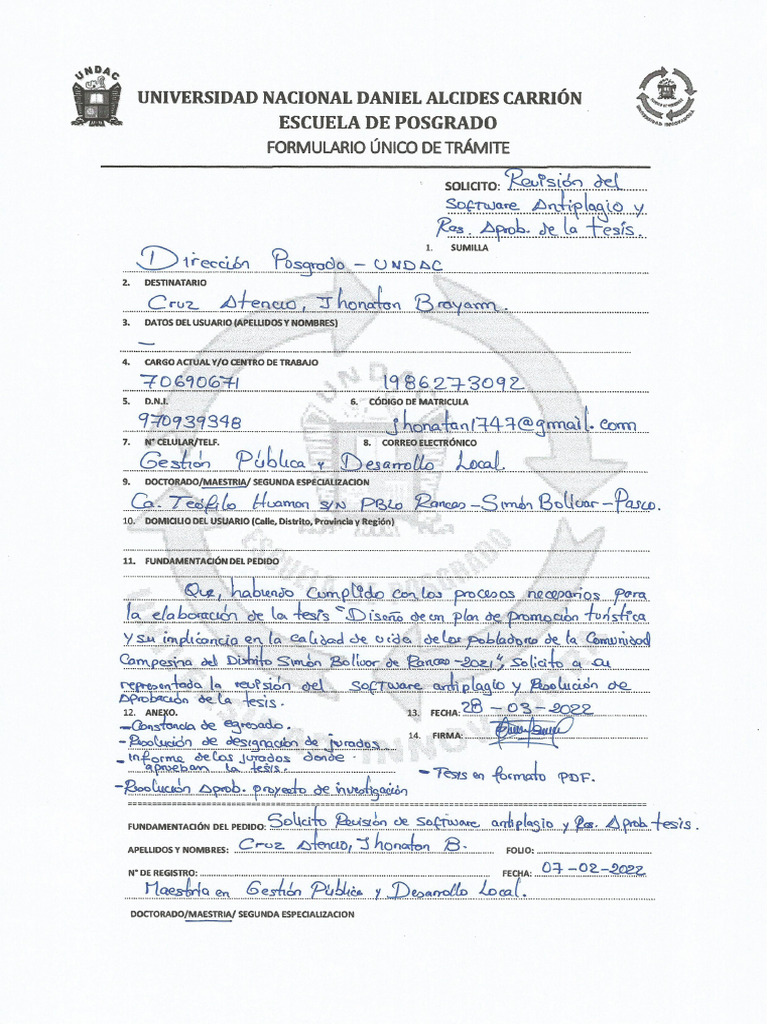 UNDAC
UNIVERSIDAD NACIONAL DANIEL ALCIDES CARRIÓN
ESCUELA DE POSGRADO
FORMULARIO ÚNICO DE TRÁMITE
SOLICITO: Revisión del
Software Antiplagio y
Res. Aprob. de la tesis.
1. SUMILLA
Dirección Posgrado - UNDAC
2. DESTINATARIO
Cruz Atencio, Jhonatan Brayamm.
3. DATOS DEL USUARIO (APELLIDOS Y NOMBRES)
—
4. CARGO ACTUAL Y/O CENTRO DE TRABAJO
70690671 1986273092
5. D.N.I. 6. CÓDIGO DE MATRICULA
970939348 jhonatan1747@gmail.com
7. N° CELULAR/TELF. 8. CORREO ELECTRÓNICO
Gestión Pública y Desarrollo Local.
9. DOCTORADO/MAESTRIA/ SEGUNDA ESPECIALIZACION
Ca. Teófilo Huaman S/N PBLO Rancas - Simón Bolívar - Pasco.
10. DOMICILIO DEL USUARIO (Calle, Distrito, Provincia y Región)
11. FUNDAMENTACIÓN DEL PEDIDO
Que, habiendo cumplido con los procesos necesarios para
la elaboración de la tesis "Diseño de un plan de promoción turística
y su implicancia en la calidad de vida de los pobladores de la Comunidad
Campesina del Distrito Simón Bolívar de Rancas - 2021", Solicito a su
representado la revisión del software antiplagio y Resolución de
Aprobación de la tesis.
12. ANEXO. 13. FECHA: 28 - 03 - 2022
- Constancia de egresado. 14. FIRMA:
- Resolución de designación de jurados
- Informe de los jurados donde
aprueban la tesis. - Tesis en formato PDF.
- Resolución Aprob. proyecto de investigación
FUNDAMENTACIÓN DEL PEDIDO: Solicito Revisión de software antiplagio y Res. Aprob tesis.
APELLIDOS Y NOMBRES: Cruz Atencio, Jhonatan B. FOLIO:
N° DE REGISTRO: FECHA: 07-02-2022
Maestría en Gestión Pública y Desarrollo Local.
DOCTORADO/MAESTRIA/ SEGUNDA ESPECIALIZACION